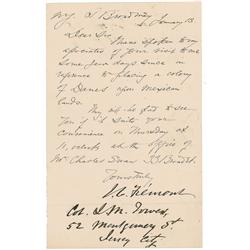 Broadway
January 13
Dear Sir, I have spoken to my
associates of your visit to me
some few days since in
reference to placing a colony
of Danes upon Mexican
lands.
glad to see
you if it suits your
convenience on Thursday at
11 o'clock at the Office of
Mr Charles
Yours truly
J. C. Frémont
Col. J. M. Towers,
52 Montgomery St.
Jersey City